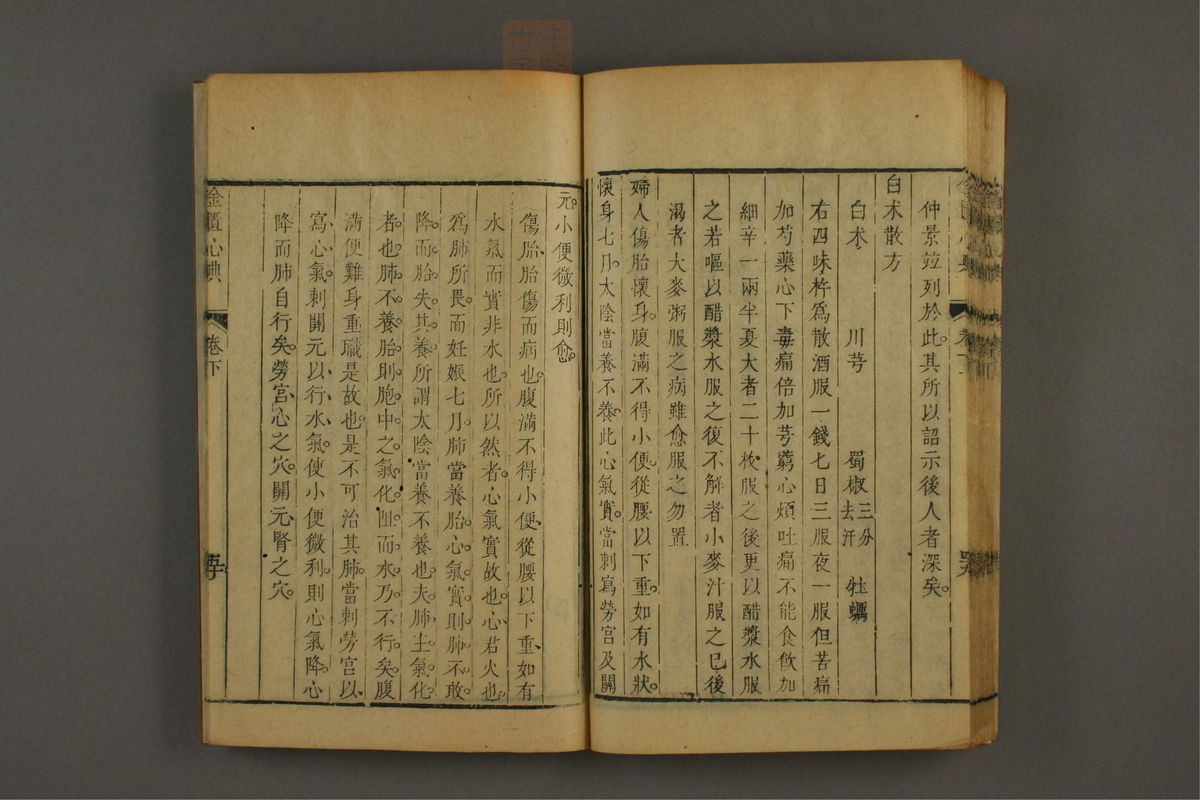 仲景竝列於此。其所以詔示後人者深矣。
白朮散方
白朮 川芎 蜀椒三分去汗 牡蠣
右四味杵爲散酒服一錢七日三服夜一服但苦痛
加芍藥心下毒痛倍加芎藭心煩吐痛不能食飲加
細辛一兩半夏大者二十枚服之後更以醋漿水服
之若嘔以醋漿水服之復不解者小麥汁服之已後
渴者大麥粥服之病雖愈服之勿置
婦人傷胎懷身。腹滿不得小便。從腰以下重。如有水狀。
懷身七月。太陰當養不養。此心氣實。當刺寫勞宮及關
元。小便微利則愈。
傷胎胎傷而病也。腹滿不得小便、從腰以下重、如有
水氣而實非水也。所以然者。心氣實故也。心君火也。
爲肺所畏。而妊娠七月。肺當養胎。心氣實則肺不敢
降。而胎失其養。所謂太陰當養不養也。夫肺主氣化
者也。肺不養胎。則胞中之氣化阻。而水乃不行矣。腹
滿便難身重職是故也。是不可治其肺。當刺勞宮以
寫心氣。刺關元以行水氣。使小便微利。則心氣降。心
降而肺自行矣。勞宮心之穴。關元腎之穴。
金匱心典 卷下